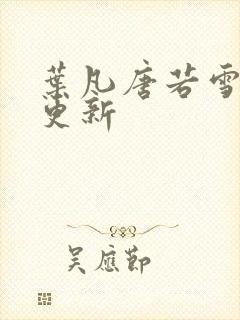 葉凡唐若雪
更新
吴應節